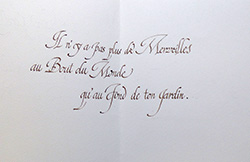 Il n'y a pas plus de Merveilles
au Bout du Monde
qu'au fond de ton Jardin.